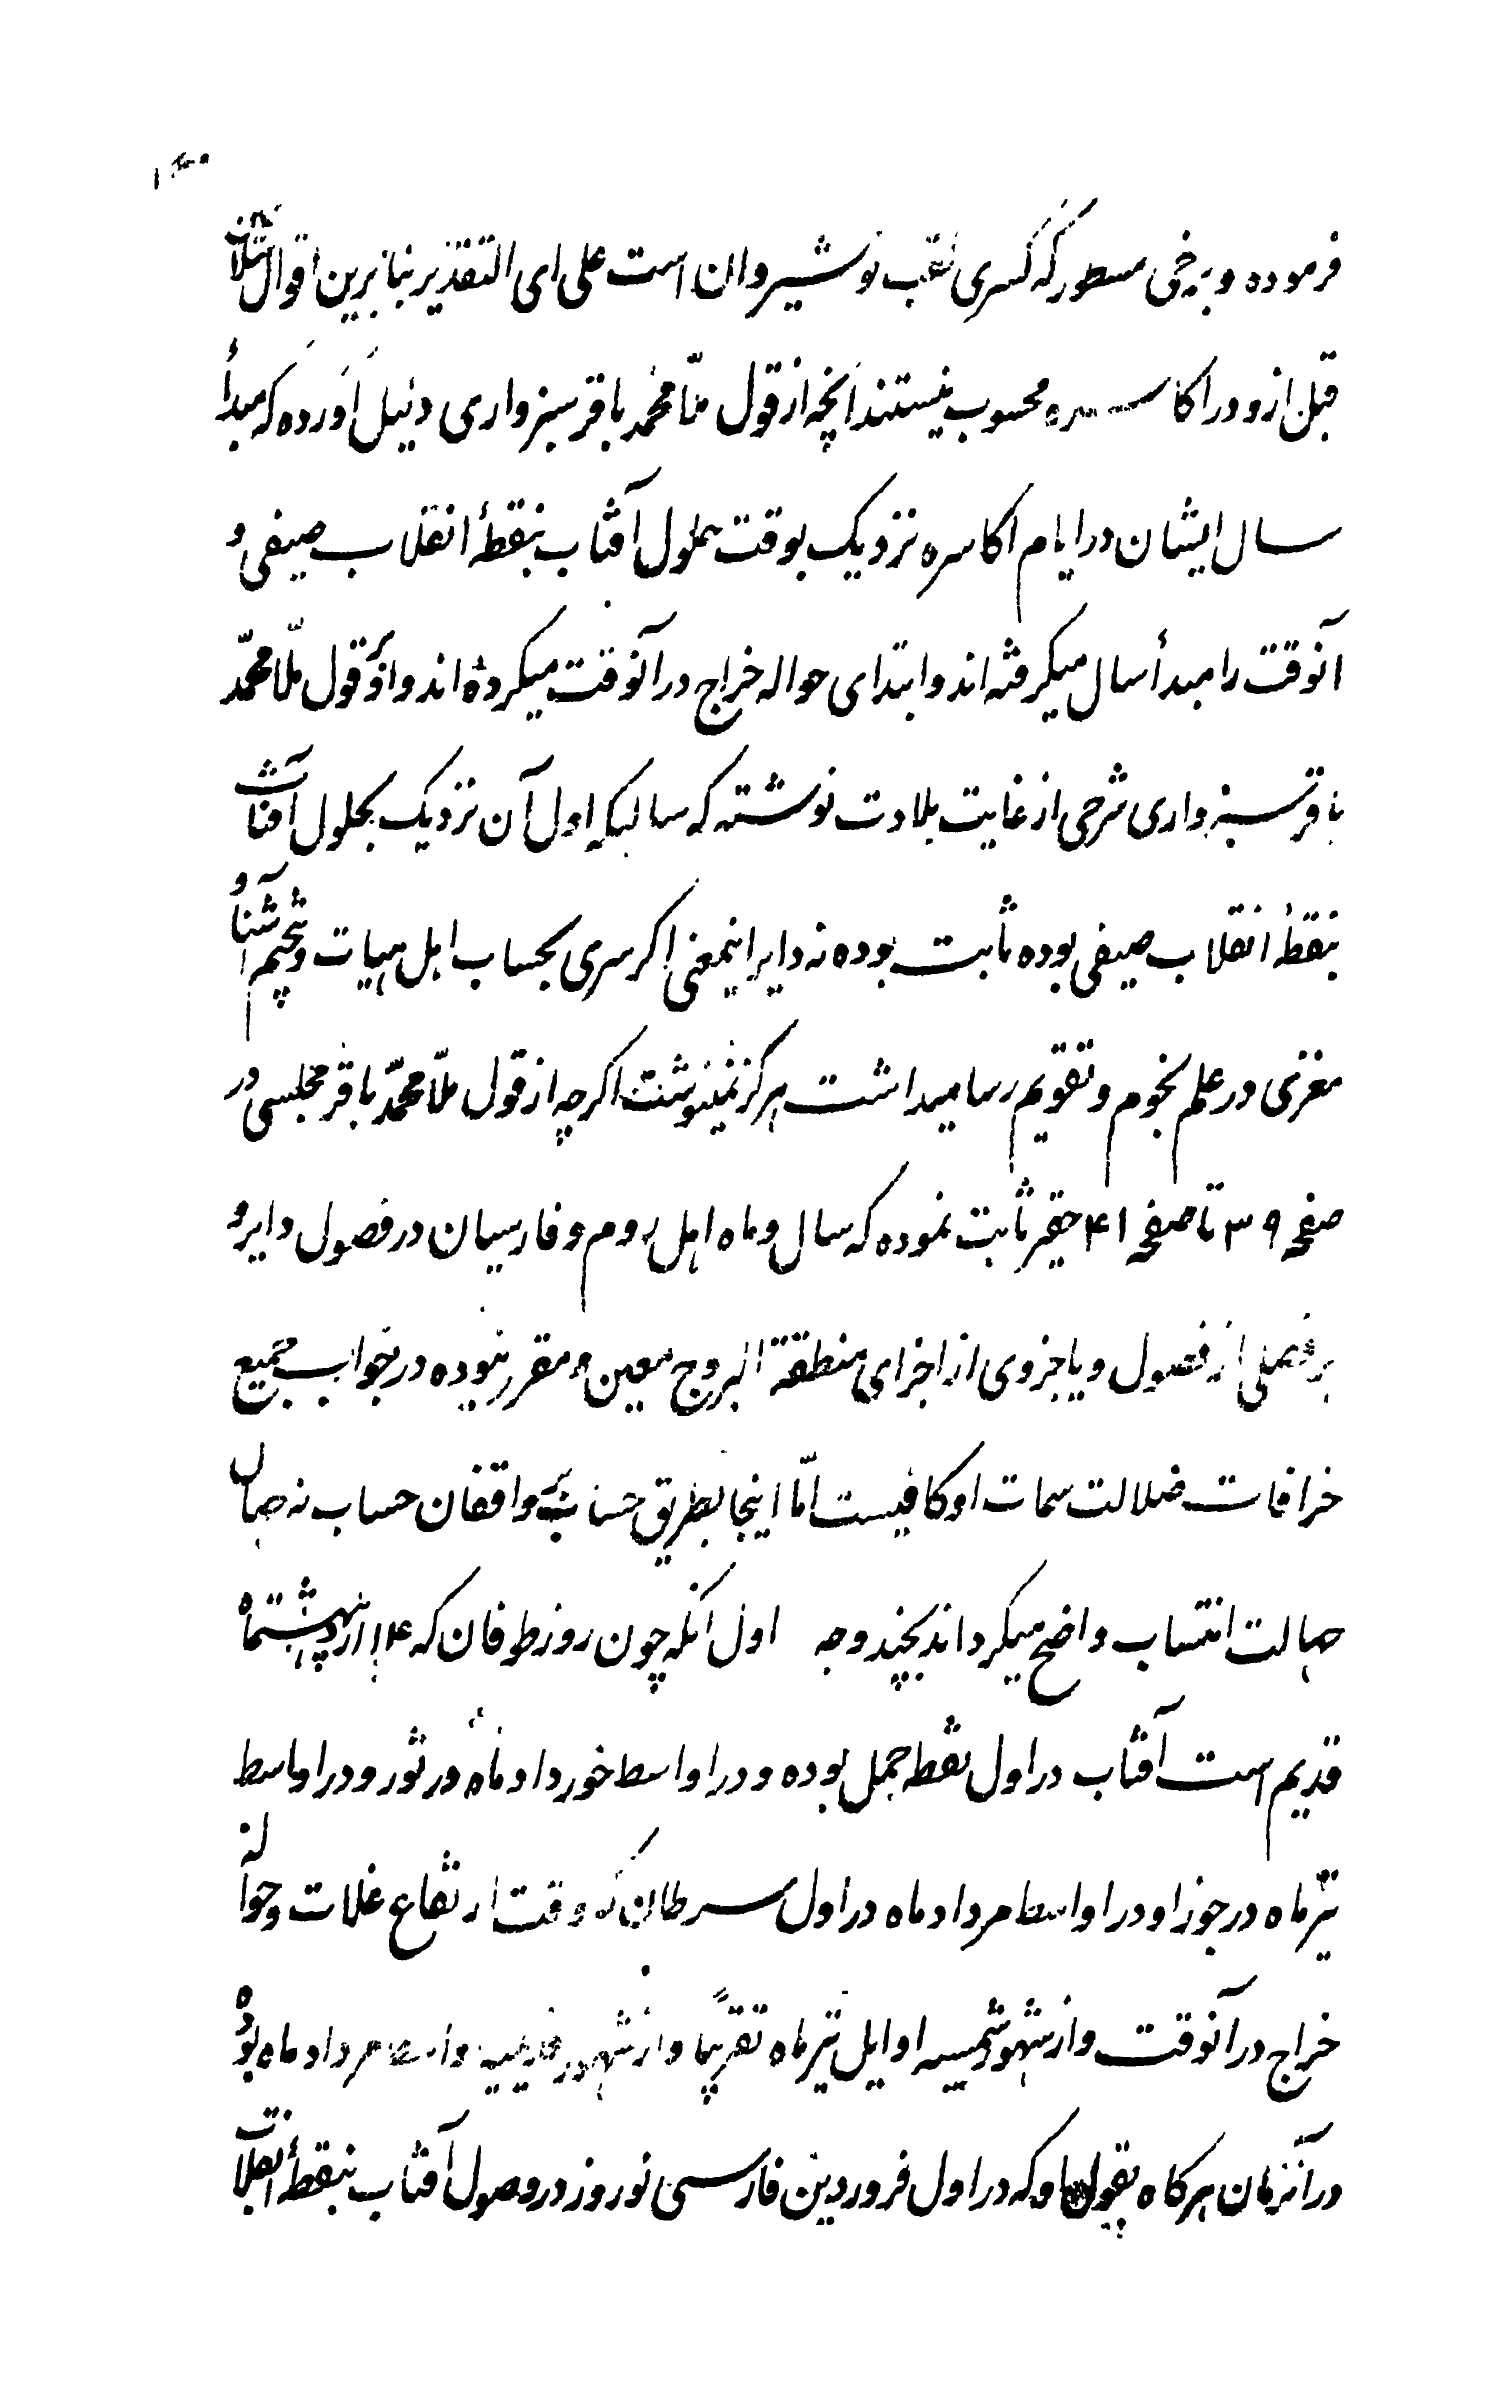 فرموده و برخی مسطور که کسری لقب نوشیروان است علی ای التقدیر بنابرین اقوال سلاطین
قبل ازو در اکاسره محسوب نیستند آنچه از قول ملّا محمّد باقر سبزواری دلیل آورده که مبدأ
سال ایشان در ایام اکاسره نزدیک بوقت حلول آفتاب بنقطهٔ انقلاب صیفی و
آنوقت را مبدأ سال میکرفته اند و ابتدای حواله خراج در آنوقت میکرده اند و او قول ملّا محمّد
باقر سبزواری شرحی از غایت بلادت نوشته که سالیکه اول آن نزدیک بحلول آفتاب
بنقطهٔ انقلاب صیفی بوده ثابت بوده نه دایر اینمعنی اکر سری بحساب اهل هیات و تنجیم آشنا و
مغزی در علم نجوم و تقویم رسا میداشت هرکز نمینوشت اکرچه از قول ملّا محمّد باقر مجلسی در
صفحه ۳۹ تا صفحه ۴۱ حقیر ثابت نموده که سال و ماه اهل روم و فارسیان در فصول دایر و
بر فصلی از فصول و یا جزوی از اجزای منطقة البروج معین و مقرر نبوده در جواب جمیع
خرافات ضلالت سمات او کافیست امّا اینجا بطریق حساب بر واقفان حساب نه جهال
جهالت انتساب واضح میکرداند بچند وجه اول آنکه چون روز طوفان که ۱۴ اردیبهشتماه
قدیم است آفتاب در اول نقطه حمل بوده و در اواسط خورداد ماه در ثور و در اواسط
تیرماه در جوزا و در اواسط مرداد ماه در اول سرطان که وقت ارتفاع غلات و حواله
خراج در آنوقت و از شهور شمسیه اوایل تیرماه تقریبًا و از شهور قدیمیه واسط مرداد ماه بوده
در آنزمان هرکاه بقول او که در اول فروردین فارسی نوروز در وصول آفتاب بنقطهٔ انقلاب